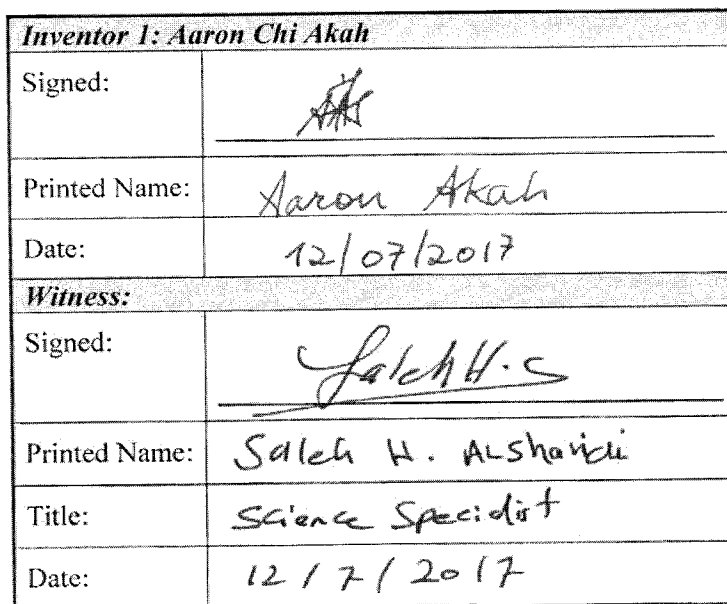 Inventor 1: Aaron Chi Akah
Signed:
Printed Name: Aaron Akah
Date: 12/07/2017
Witness:
Signed: Saleh H. S
Printed Name: Saleh H. ALSharidi
Title: Science Specialist
Date: 12/7/2017